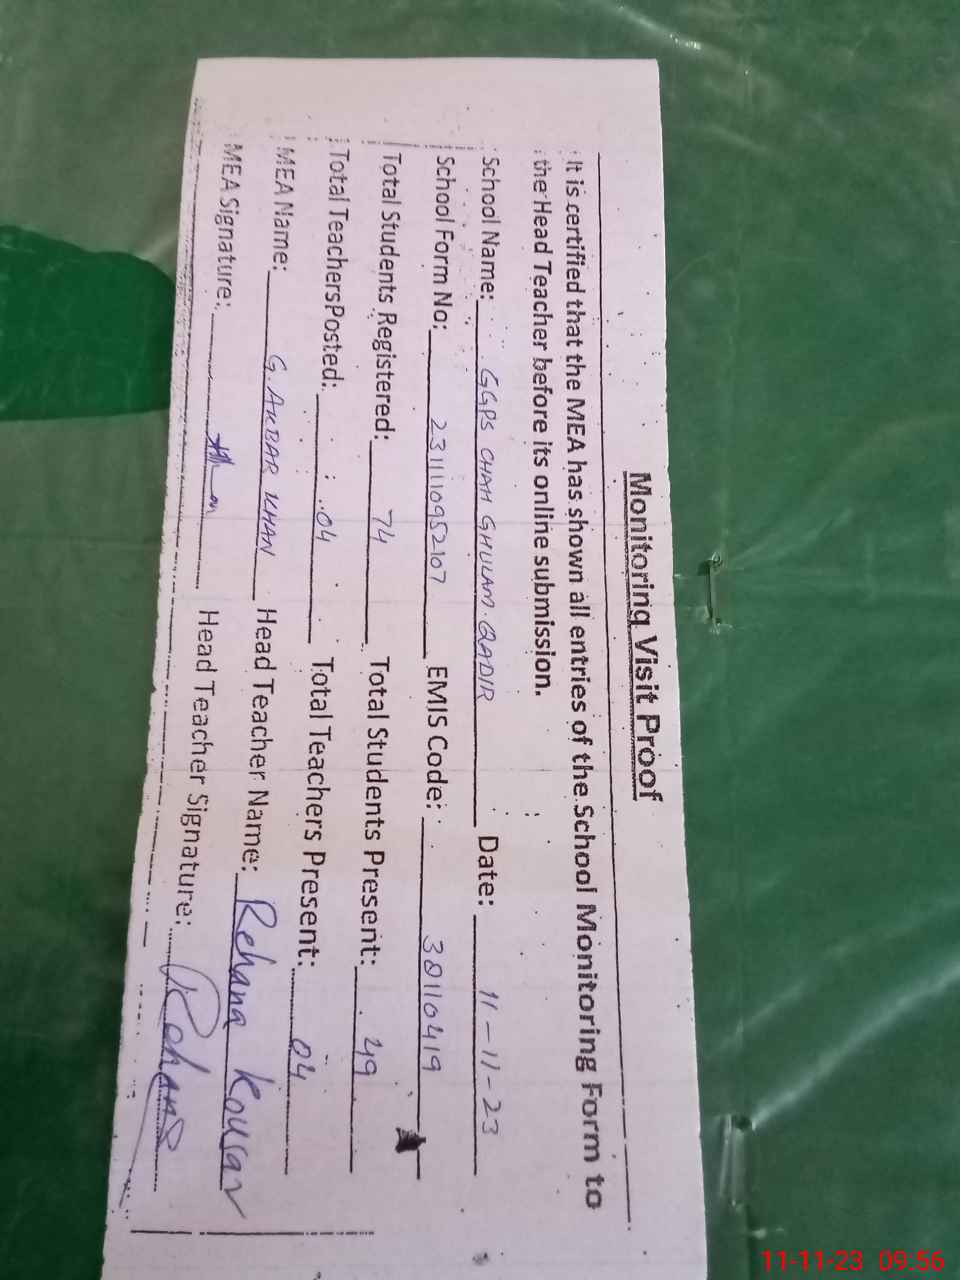 Monitoring Visit Proof
It is certified that the MEA has shown all entries of the School Monitoring Form to
the Head Teacher before its online submission.
School Name: GGPS CHAH GHULAM QADIR Date: 11-11-23
School Form No: 2311110952107 EMIS Code: 38110419
Total Students Registered: 74 Total Students Present: 49
Total TeachersPosted: 04 Total Teachers Present: 04
MEA Name: G. AKBAR KHAN Head Teacher Name: Rehana Kousar
MEA Signature: Head Teacher Signature: Rehana
11-11-23 09.56